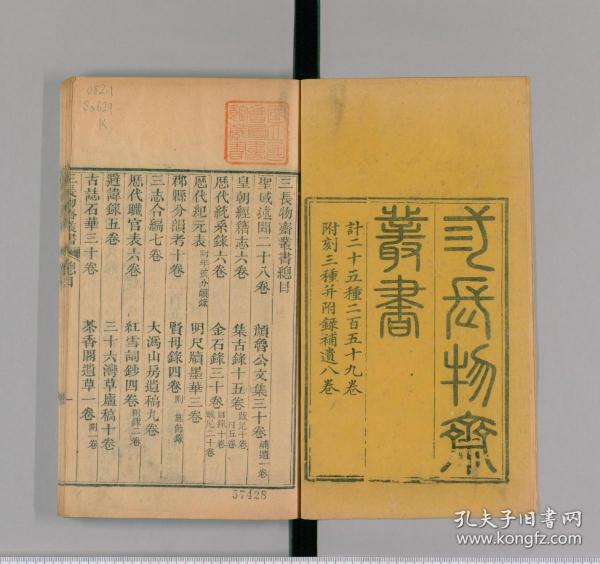 三長物齋
叢書
計二十五種二百五十九卷
附刻三種并附錄補遺八卷
三長物齋叢書總目
聖域述聞二十八卷
顏魯公文集三十卷 補遺一卷
皇朝經籍志六卷
集古錄十五卷
歷代統系錄六卷
金石錄三十卷
歷代紀元表
明尺牘墨華三卷
郡縣分韻考十卷
賢母錄四卷
三志合編七卷
大溈山房遺稿九卷
歷代職官表六卷
紅雪詞鈔四卷 附錄二卷
避諱錄五卷
三十六灣草廬稿十卷
古誌石華三十卷
茶香閣遺草一卷 附一卷
三長物齋叢書 總目
0821
Sa629
K
57428
孔夫子旧书网
www.kongfz.com